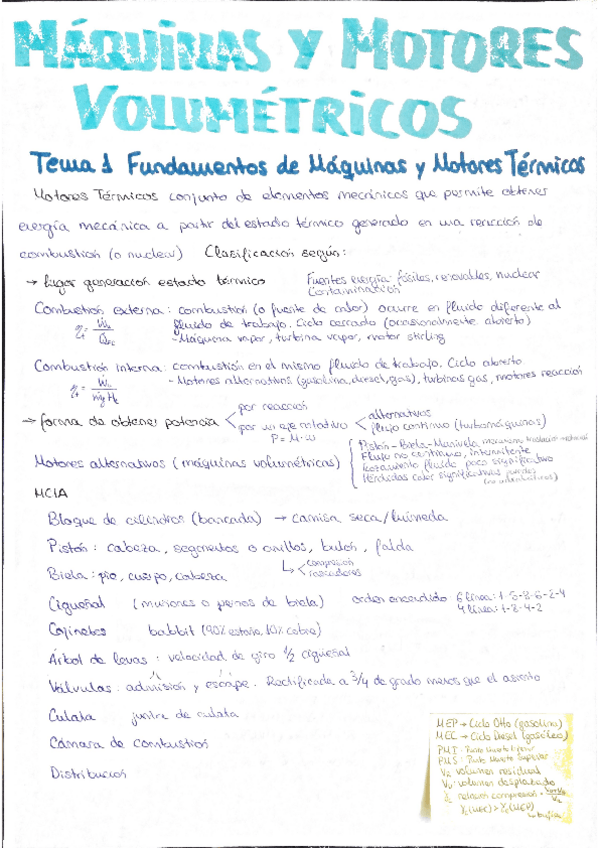 MÁQUINAS Y MOTORES
VOLUMÉTRICOS
Tema 1 Fundamentos de Máquinas y Motores Térmicos
Motores Térmicos conjunto de elementos mecánicos que permite obtener
energía mecánica a partir del estado térmico generado en una reacción de
combustión (o nuclear) Clasificación según:
→ lugar generación estado térmico Fuentes energía: fósiles, renovables, nuclear
Contaminación
Combustión externa: combustión (o fuente de calor) ocurre en fluido diferente al
fluido de trabajo. Ciclo cerrado (ocasionalmente abierto)
- Máquina vapor, turbina vapor, motor stirling
Combustión interna: combustión en el mismo fluido de trabajo. Ciclo abierto
- Motores alternativos (gasolina, diesel, gas), turbinas gas, motores reacción
→ forma de obtener potencia
por reacción
por un eje rotativo
P = M·ω
alternativos
flujo continuo (turbomáquinas)
Motores alternativos (máquinas volumétricas)
Pistón-Biela-Manivela
Flujo no continuo, intermitente
Rozamiento fluido poco significativo
Pérdidas calor significativas
MCIA
Bloque de cilindros (bancada) → camisa seca/húmeda
Pistón: cabeza, segmentos o anillos, bulón, falda
↳ compresión
rascadores
Biela: pie, cuerpo, cabeza
Cigüeñal (muñones o de biela) orden encendido 6 línea: 1-5-3-6-2-4
4 línea: 1-3-4-2
Cojinetes babbit (90% estaño, 10% cobre)
Árbol de levas: velocidad de giro 1/2 cigüeñal
Válvulas: admisión y escape. Rectificada a 3/4 de grado menos que el asiento
Culata junta de culata
Cámara de combustión
Distribución
MEP → Ciclo Otto (gasolina)
MEC → Ciclo Diesel (gasóleo)
PMI: Punto Muerto Inferior
PMS: Punto Muerto Superior
volumen residual
volumen desplazado
relación compresión
bujía